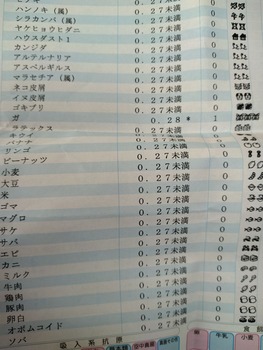 ヒノキ 0.27未満 0
ハンノキ(属) 0.27未満 0
シラカンバ(属) 0.27未満 0
ヤケヒョウヒダニ 0.27未満 0
ハウスダスト1 0.27未満 0
カンジダ 0.27未満 0
アルテルナリア 0.27未満 0
アスペルギルス 0.27未満 0
マラセチア(属) 0.27未満 0
ネコ皮屑 0.27未満 0
イヌ皮屑 0.27未満 0
ゴキブリ 0.27未満 0
ガ 0.28* 1
ラテックス 0.27未満 0
キウイ 0.27未満 0
バナナ 0.27未満 0
リンゴ 0.27未満 0
ピーナッツ 0.27未満 0
小麦 0.27未満 0
大豆 0.27未満 0
米 0.27未満 0
ゴマ 0.27未満 0
マグロ 0.27未満 0
サケ 0.27未満 0
サバ 0.27未満 0
エビ 0.27未満 0
カニ 0.27未満 0
ミルク 0.27未満 0
牛肉 0.27未満 0
鶏肉 0.27未満 0
豚肉 0.27未満 0
卵白 0.27未満 0
オボムコイド 0.27未満 0
ソバ 0.27未満 0
吸入系抗原
卵 牛乳 小麦